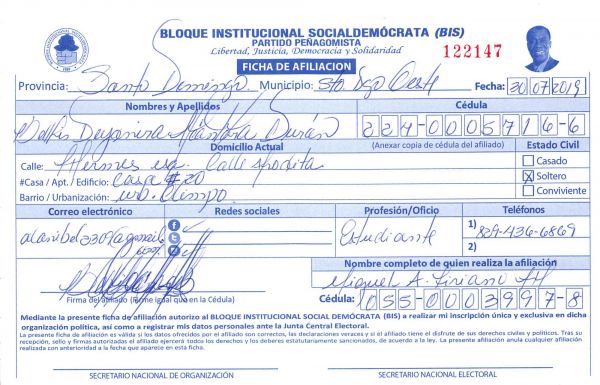 BLOQUE INSTITUCIONAL SOCIALDEMÓCRATA (BIS)
PARTIDO PEÑAGOMISTA
Libertad, Justicia, Democracia y Solidaridad
122147
FICHA DE AFILIACION
Provincia: Santo Domingo Municipio: Sto Dgo Oeste Fecha: 30/07/2019
Nombres y Apellidos Cédula
Deyanira Durán 224-0005716-6
Domicilio Actual (Anexar copia de cédula del afiliado) Estado Civil
Calle: Hermes esq. Calle Casado
#Casa / Apt. / Edificio: Casa #20 X Soltero
Barrio / Urbanización: urb. Olimpo Conviviente
Correo electrónico Redes sociales Profesión/Oficio Teléfonos
Estudiante 1) 829-436-6869
2)
Nombre completo de quien realiza la afiliación
Miguel A.
Firma del afiliado (Firme igual que en la Cédula) Cédula: 055-0003997-8
Mediante la presente ficha de afiliación autorizo al BLOQUE INSTITUCIONAL SOCIAL DEMÓCRATA (BIS) a realizar mi inscripción única y exclusiva en dicha
organización política, así como a registrar mis datos personales ante la Junta Central Electoral.
La presente ficha de afiliación es válida si los datos ofrecidos por el afiliado son correctos, las declaraciones veraces y si el afiliado tiene el disfrute de sus derechos civiles y políticos. Tras su
recepción, sello y firmas autorizadas el afiliado ejercerá todos los derechos y los deberes estatutariamente sancionados, de acuerdo a la ley. La presente afiliación anula cualquier afiliación
realizada con anterioridad a la fecha que aparece en esta ficha.
SECRETARIO NACIONAL DE ORGANIZACIÓN SECRETARIO NACIONAL ELECTORAL